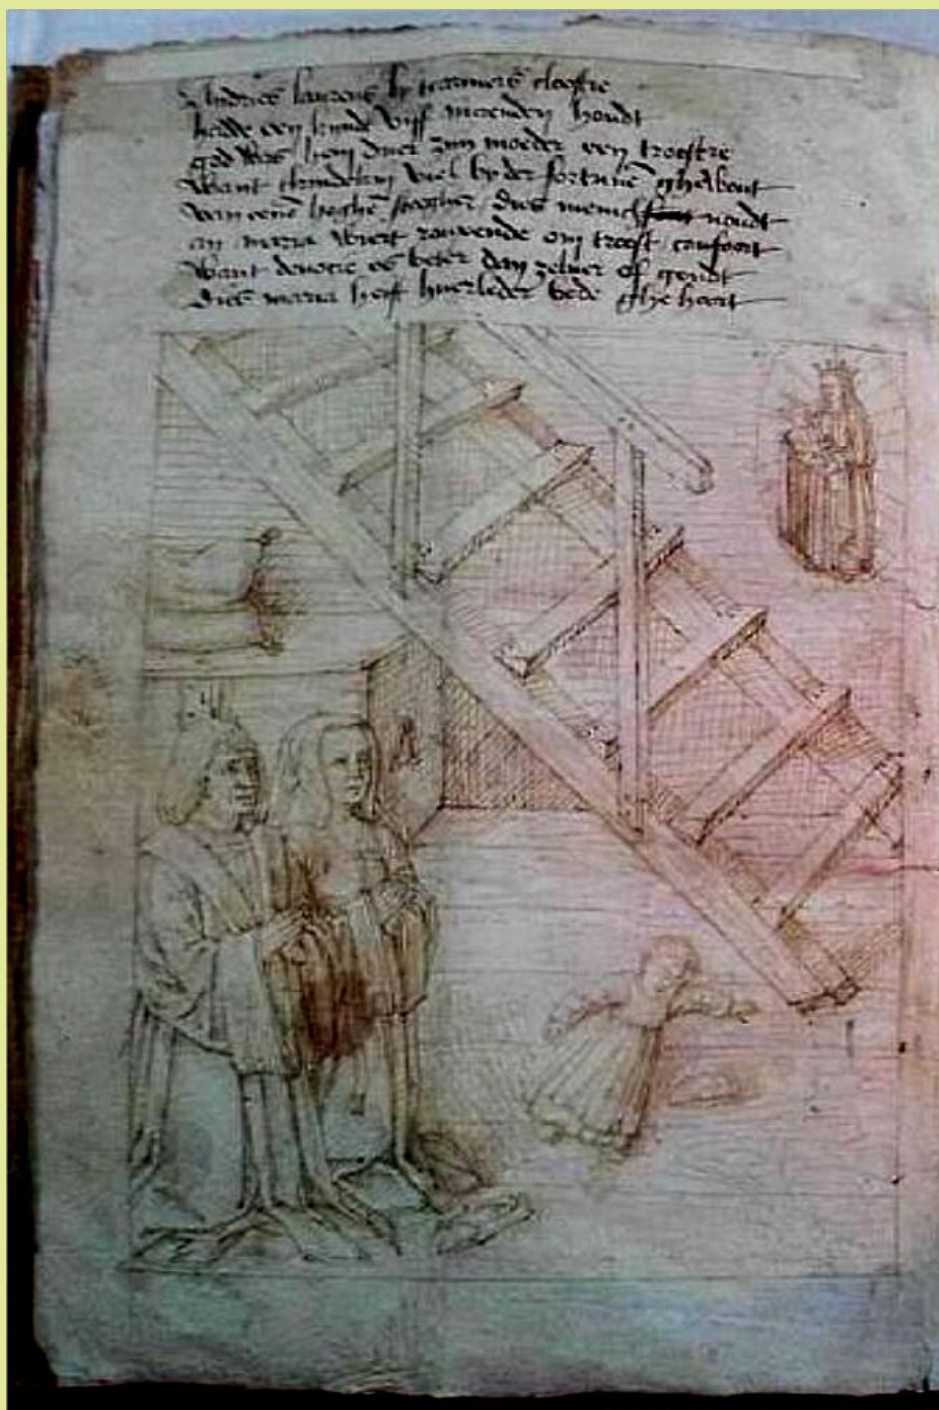 Andries laurens by carmers cloostre
hadde een kindt vijf maenden houdt
god was hem ende zijn moeder een troostre
want tkindekin viel by der fortunen ghebout
van eene hoghe steegher dies menich noudt
an maria wiert rouwende om troost confoort
want devocie es beter dan zelver of goudt
dies maria heift huerleder bede ghehoort